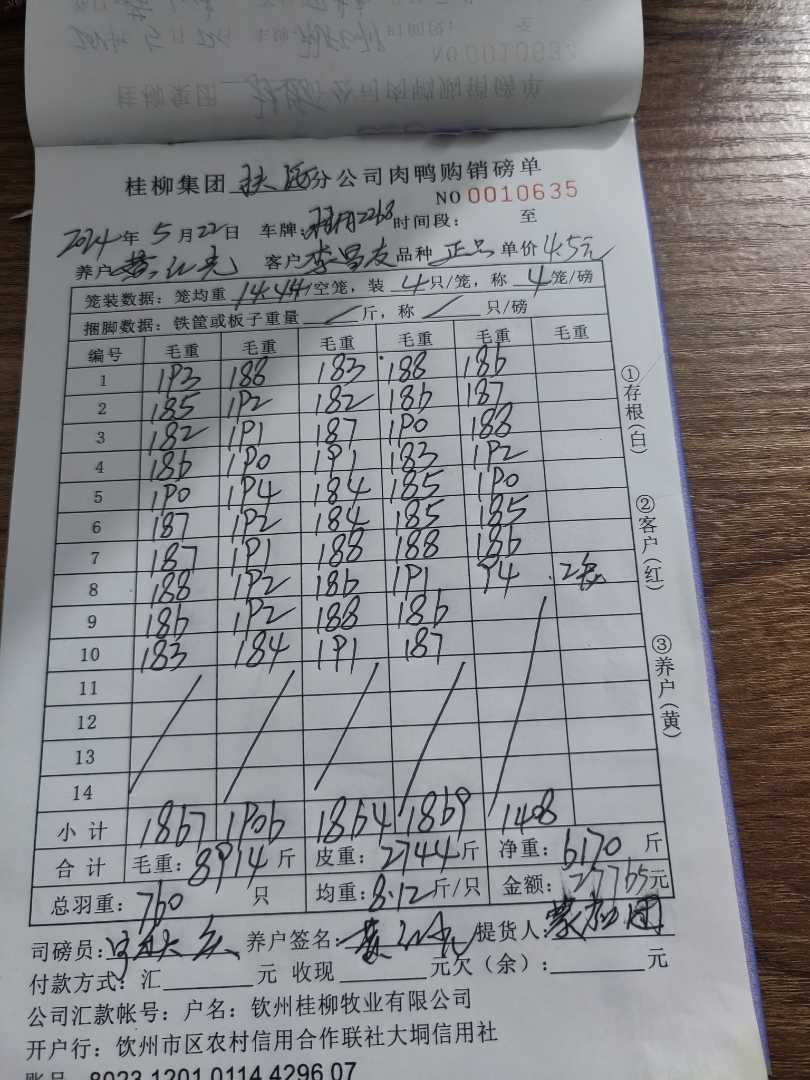 桂柳集团 扶绥 分公司肉鸭购销磅单
NO 0010635
2024 年 5 月 22 日 车牌: 2268 时间段: 至
养户 客户 李昌友 品种 正品 单价 4.5元
笼装数据: 笼均重 14.44/空笼, 装 4 只/笼, 称 4 笼/磅
捆脚数据: 铁筐或板子重量 / 斤, 称 / 只/磅
编号 毛重 毛重 毛重 毛重 毛重 毛重
1 193 188 183 188 186
2 185 192 182 186 187
3 182 191 187 190 188
4 186 190 191 183 192
5 190 194 184 185 190
6 187 192 184 185 185
7 187 191 188 188 186
8 188 192 186 191 94 2笼
9 186 192 188 186
10 183 184 191 187
11
12
13
14
小计 1867 1906 1864 1869 1408
合计 毛重: 8914 斤 皮重: 2744 斤 净重: 6170 斤
总羽重: 760 只 均重: 8.12 斤/只 金额: 27765 元
司磅员: 养户签名: 提货人:
付款方式: 汇 元 收现 元欠(余): 元
公司汇款帐号: 户名: 钦州桂柳牧业有限公司
开户行: 饮州市区农村信用合作联社大垌信用社
账号 8023 1201 0114 4296 07
①存根(白)
②客户(红)
③养户(黄)